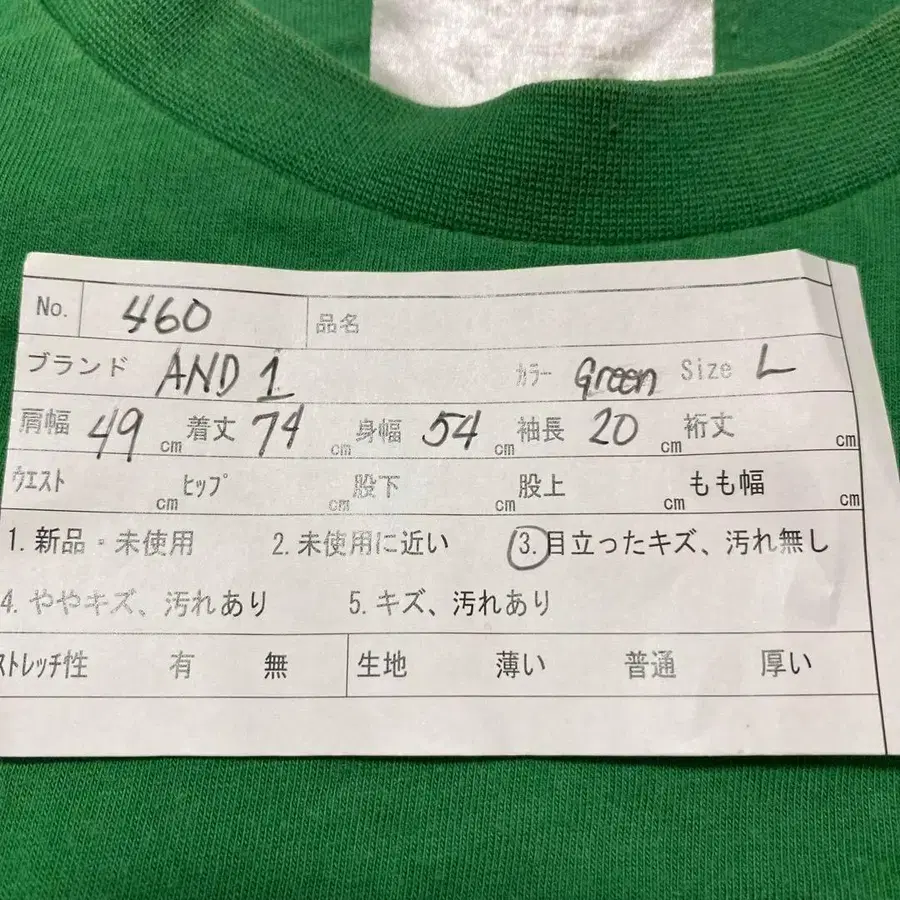 No. 460 品名
ブランド AND 1 カラー Green Size L
肩幅 49 cm 着丈 74 cm 身幅 54 cm 袖長 20 cm 裄丈 cm
ウエスト cm ヒップ cm 股下 cm 股上 cm もも幅 cm
1. 新品・未使用 2. 未使用に近い 3. 目立ったキズ、汚れ無し
4. ややキズ、汚れあり 5. キズ、汚れあり
ストレッチ性 有 無 生地 薄い 普通 厚い